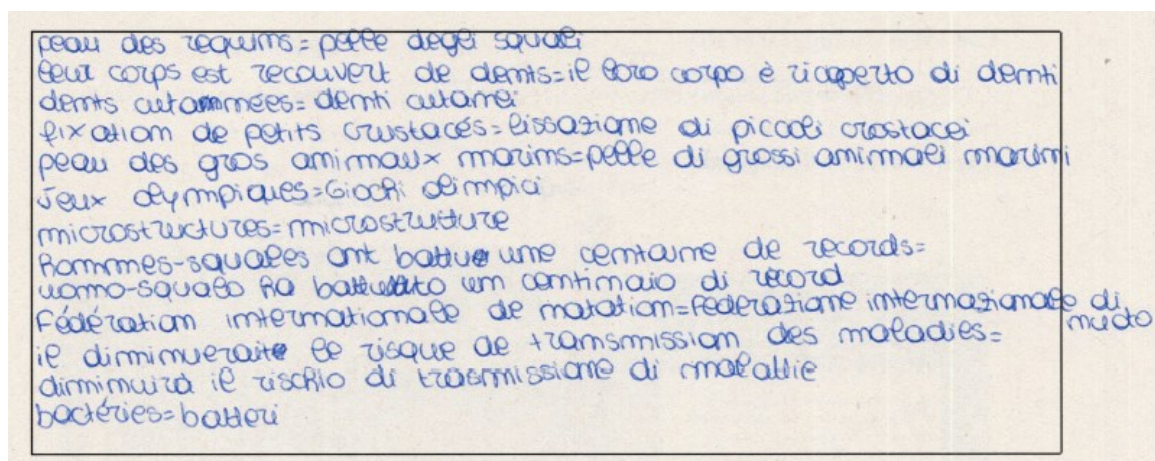 peau des requims = pelle degli squali
leur corps est recouvert de dents = il loro corpo è ricoperto di denti
dents cutannées = denti cutanei
fixation de petits crustacés = fissazione di piccoli crostacei
peau des gros animaux marins = pelle di grossi animali marini
Jeux olympiques = Giochi olimpici
microstructures = microstrutture
hommes-squales ont battu une centaine de records =
uomo-squalo ha battuto un centinaio di record
Fédération internationale de natation = Federazione internazionale di nuoto
il diminuerait le risque de transmission des maladies =
diminuirà il rischio di trasmissione di malattie
bactéries = batteri